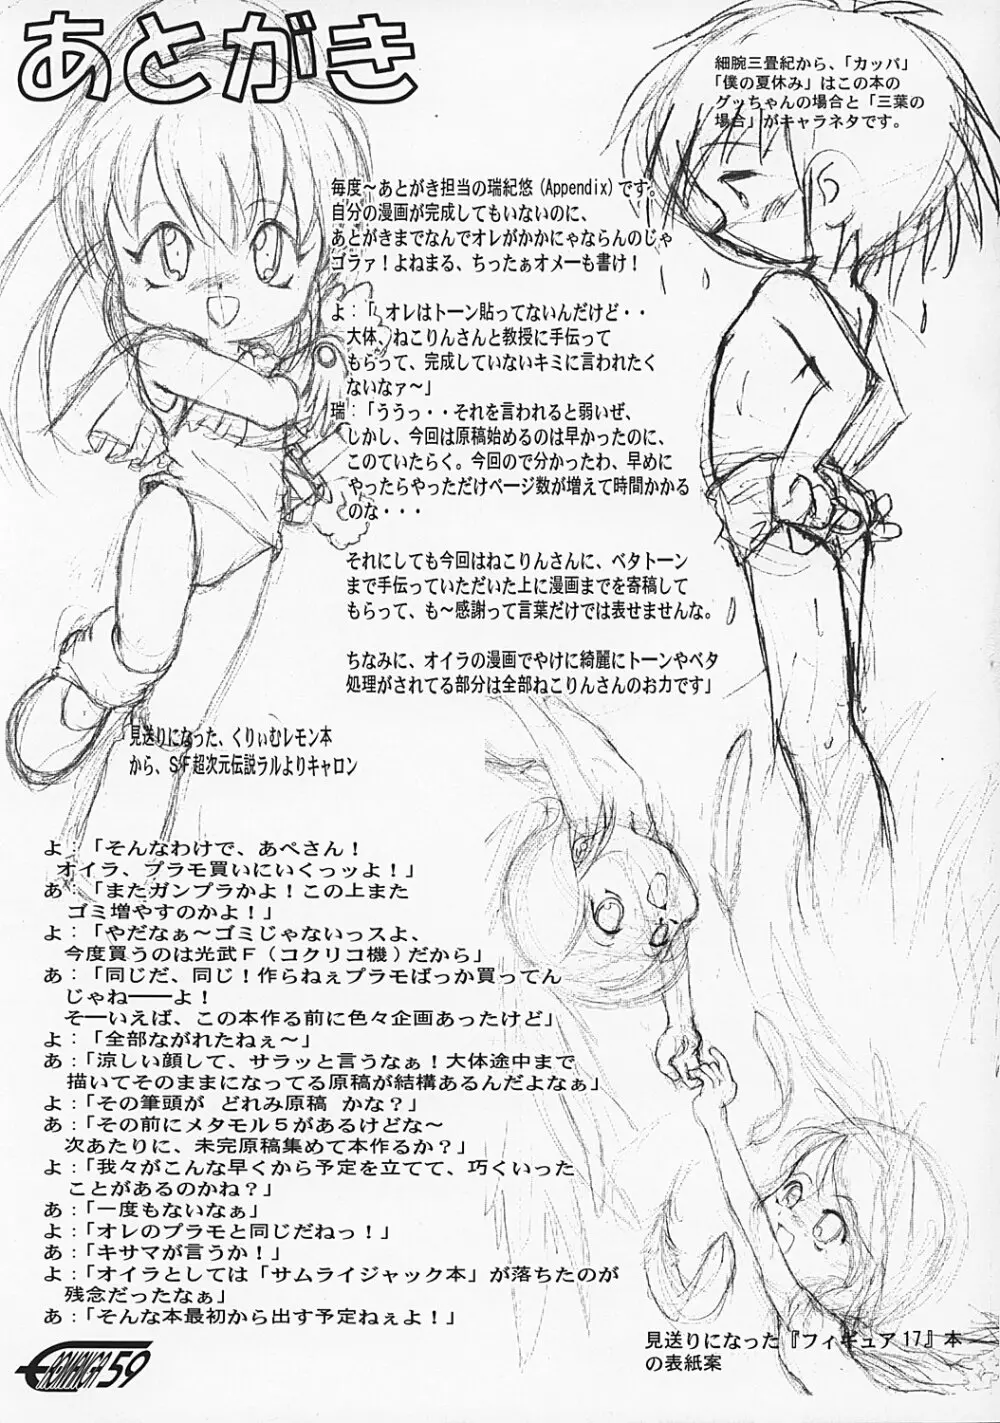 あとがき
細腕三畳紀から、「カッパ」
「僕の夏休み」はこの本の
グッちゃんの場合と「三葉の
場合」がキャラネタです。
毎度～あとがき担当の瑞紀悠(Appendix)です。
自分の漫画が完成してもいないのに、
あとがきまでなんでオレがかかにゃならんのじゃ
ゴラァ！よねまる、ちったぁオメーも書け！
よ：「 オレはトーン貼ってないんだけど・・
大体、ねこりんさんと教授に手伝って
もらって、完成していないキミに言われたく
ないなァ～」
瑞：「ううっ・・それを言われると弱いぜ、
しかし、今回は原稿始めるのは早かったのに、
このていたらく。今回ので分かったわ、早めに
やったらやっただけページ数が増えて時間かかる
のな・・・
それにしても今回はねこりんさんに、ベタトーン
まで手伝っていただいた上に漫画までを寄稿して
もらって、も～感謝って言葉だけでは表せませんな。
ちなみに、オイラの漫画でやけに綺麗にトーンやベタ
処理がされてる部分は全部ねこりんさんのお力です」
見送りになった、くりぃむレモン本
から、SF超次元伝説ラルよりキャロン
よ：「そんなわけで、あぺさん！
オイラ、プラモ買いにいくっッよ！」
あ：「またガンプラかよ！この上また
ゴミ増やすのかよ！」
よ：「やだなぁ～ゴミじゃないっスよ、
今度買うのは光武Ｆ（コクリコ機）だから」
あ：「同じだ、同じ！作らねぇプラモばっか買ってん
じゃね――よ！
そ―いえば、この本作る前に色々企画あったけど」
よ：「全部ながれたねぇ～」
あ：「涼しい顔して、サラッと言うなぁ！大体途中まで
描いてそのままになってる原稿が結構あるんだよなぁ」
よ：「その筆頭が どれみ原稿 かな？」
あ：「その前にメタモル５があるけどな～
次あたりに、未完原稿集めて本作るか？」
よ：「我々がこんな早くから予定を立てて、巧くいった
ことがあるのかね？」
あ：「一度もないなぁ」
よ：「オレのプラモと同じだねっ！」
あ：「キサマが言うか！」
よ：「オイラとしては「サムライジャック本」が落ちたのが
残念だったなぁ」
あ：「そんな本最初から出す予定ねぇよ！」
見送りになった『フィギュア17』本
の表紙案
EROMANGA 59